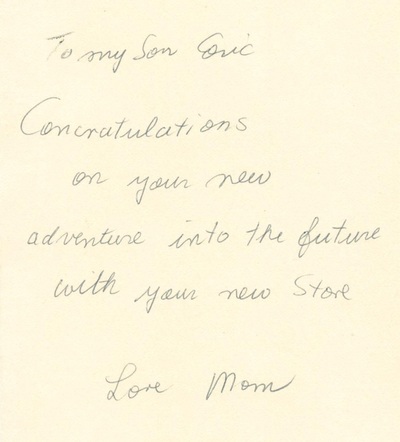 To my Son Eric
Concratulations
on your new
adventure into the future
with your new Store
Love Mom